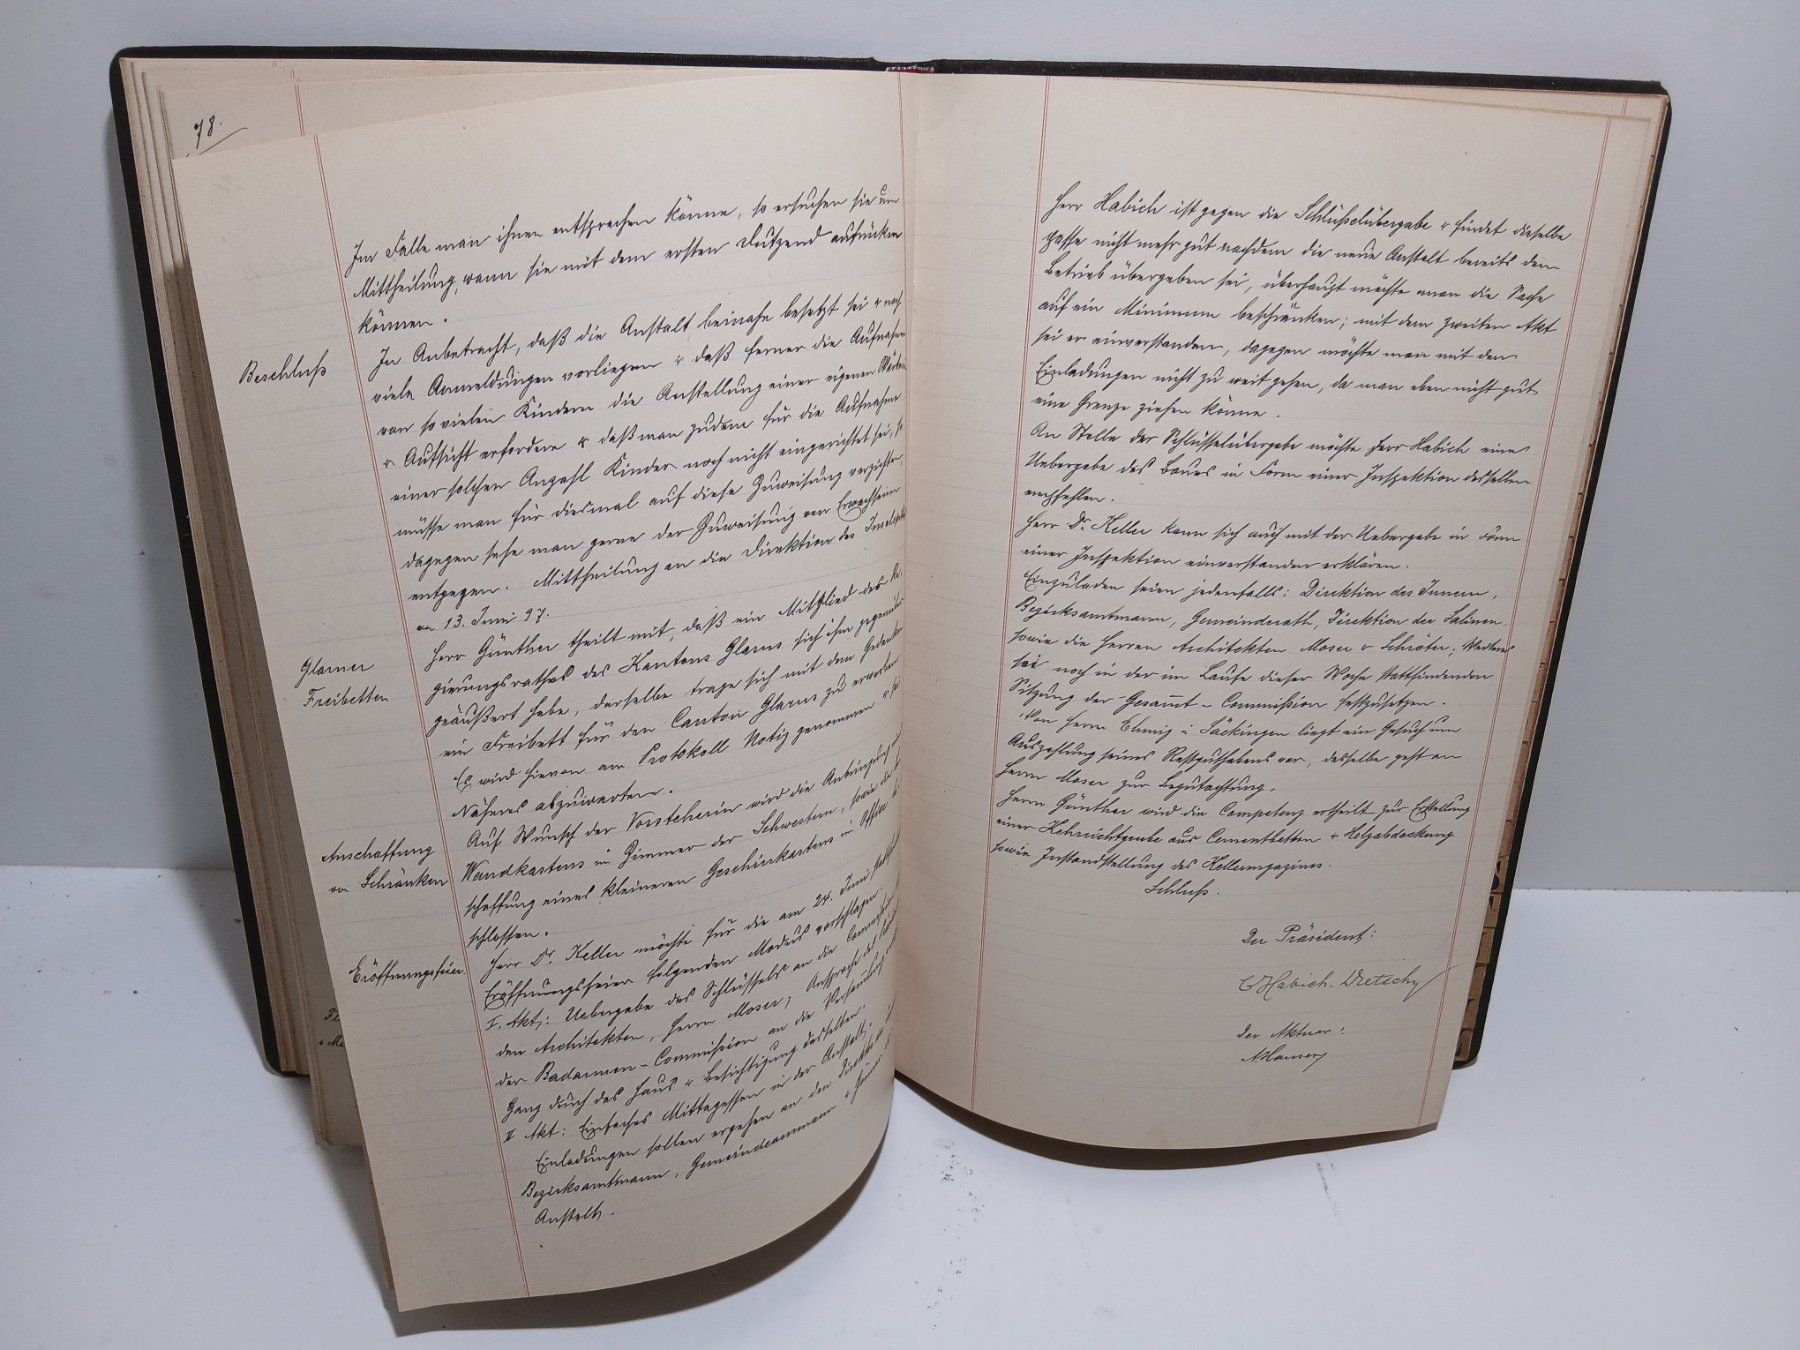 78.
Im Falle man ihnen entsprechen könne, so ersuchen sie um
Mittheilung, wann sie mit dem ersten Dutzend aufrücken
können.
Beschluß
In Anbetracht, daß die Anstalt beinahe besetzt sei & noch
viele Anmeldungen vorliegen & daß ferner die Aufnahme
von so vielen Kindern die Anstellung einer eigenen
& Aufsicht erfordere & daß man zudem für die Aufnahme
einer solchen Anzahl Kinder noch nicht eingerichtet sei, so
müsse man für diesmal auf diese Zuweisung verzichten,
dagegen sehe man gerne der Zuweisung von Erwachsenen
entgegen. Mittheilung an die Direktion des
13. Juni 97.
Glarner
Freibetten
Herr Günther theilt mit, daß ein Mitglied des Re-
gierungsrathes des Kantons Glarus sich ihm gegenüber
geäußert habe, derselbe trage sich mit dem Gedanken
ein Freibett für den Canton Glarus zu erwerben
Es wird hievon am Protokoll Notiz genommen &
Näheres abzuwarten.
Anschaffung
von Schränken
Auf Wunsch der Vorsteherin wird die Anbringung
Wandkastens im Zimmer der Schwestern, sowie die
schaffung eines kleineren Geschirrkastens im Office
schlossen.
Eröffnungsfeier
Herr Dr. Keller möchte für die am 24. Juni
Eröffnungsfeier folgenden Modus vorschlagen
I. Akt: Uebergabe des Schlüssels an die
den Architekten, Herrn Moser; Ansprache des
der Badarmen-Commission an die Versammlung
Gang durch das Haus & Besichtigung desselben.
II Akt: Einfaches Mittagessen in der Anstalt;
Einladungen sollen ergehen an den Direktor
Bezirksamtmann, Gemeindeammann &
Anstalt.
Herr Habich ist gegen die Schlüßelübergabe & findet dieselbe
passe nicht mehr gut nachdem die neue Anstalt bereits dem
Betrieb übergeben sei, überhaupt möchte man die Sache
auf ein Minimum beschränken; mit dem zweiten Akt
sei er einverstanden, dagegen möchte man mit den
Einladungen nicht zu weit gehen, da man eben nicht gut
eine Grenze ziehen könne.
An Stelle der Schlüsselübergabe möchte Herr Habich eine
Uebergabe des Baues in Form einer Inspektion desselben
empfehlen.
Herr Dr. Keller kann sich auch mit der Uebergabe in Form
einer Inspektion einverstanden erklären.
Einzuladen seien jedenfalls: Direktion des Innern,
Bezirksamtmann, Gemeinderath, Direktion der Salinen
sowie die Herren Architekten Moser & Schröter; Weiteres
sei noch in der im Laufe dieser Woche stattfindenden
Sitzung der Gesamt-Commißion festzusetzen.
Von Herrn in Säckingen liegt ein Gesuch um
Auszahlung seines Restguthabens vor, dasselbe geht an
Herrn Moser zur Begutachtung.
Herrn Günther wird die Competenz ertheilt zur Erstellung
einer Kehrichtgrube aus Cementbetten & Holzabdeckung
sowie Instandstellung des Kellermagazines.
Schluß.
Der Präsident:
C Habich-Dietschy
Der Aktuar: